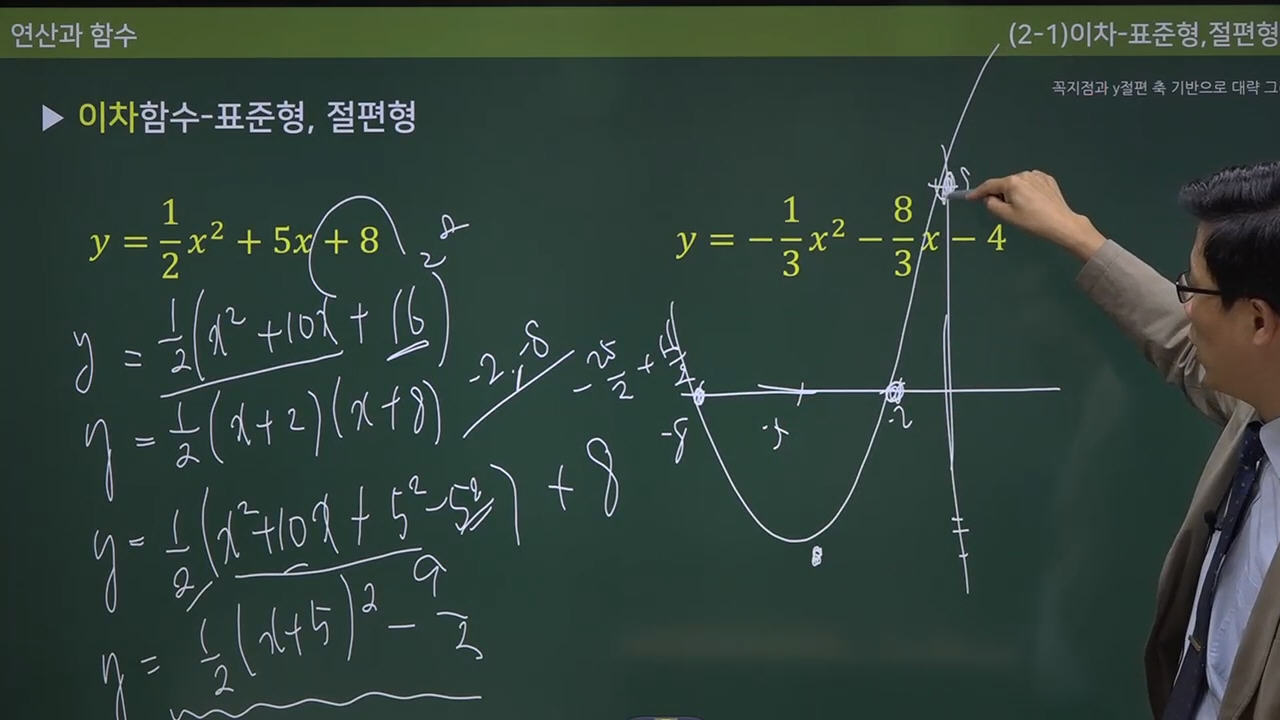 연산과 함수
(2-1)이차-표준형,절편형
꼭지점과 y절편 축 기반으로 대략 그
▶ 이차함수-표준형, 절편형
y = 1/2 x² + 5x + 8
y = 1/2 (x² + 10x + 16)
y = 1/2 (x+2)(x+8)
-2, -8
y = 1/2 (x² + 10x + 5² - 5²) + 8
y = 1/2 (x+5)² - 9/2
y = -1/3 x² - 8/3 x - 4
-25/2 +
-8
-5
-2